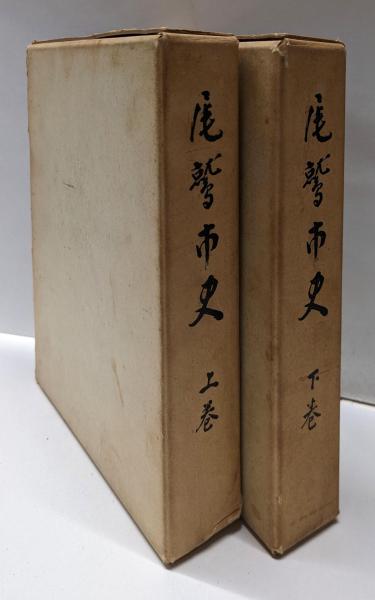 尾鷲市史
上巻
尾鷲市史
下巻